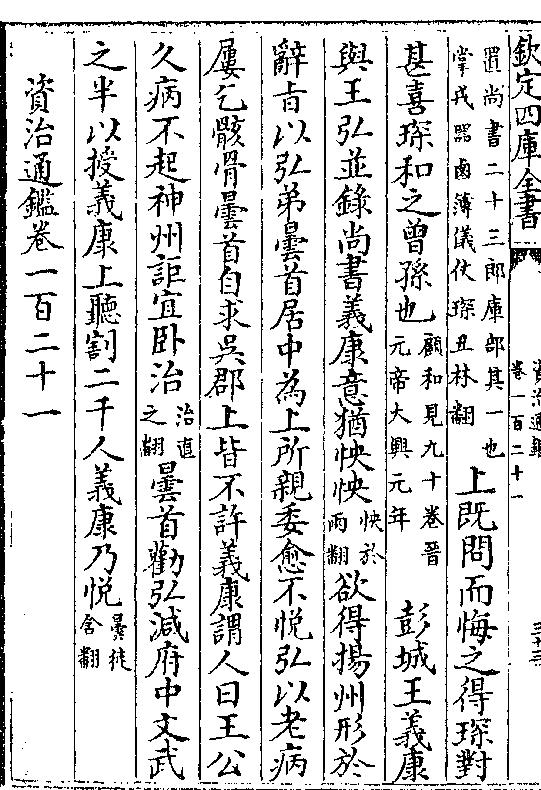 欽定四庫全書
資治通鑑
卷一百二十一
置尚書二十三郎庫部其一也
掌戎器鹵簿儀仗琛丑林翻
上既問而悔之得琛對
甚喜琛和之曾孫也
顧和見九十卷晉
元帝大興元年
彭城王義康
與王弘並錄尚書義康意猶怏怏
怏於
兩翻
欲得揚州形於
辭旨以弘弟曇首居中為上所親委愈不悦弘以老病
屢乞骸骨曇首自求吳郡上皆不許義康謂人曰王公
久病不起神州詎宜卧治
治直
之翻
曇首勸弘減府中文武
之半以授義康上聽割二千人義康乃悦
曇徒
含翻
資治通鑑卷一百二十一